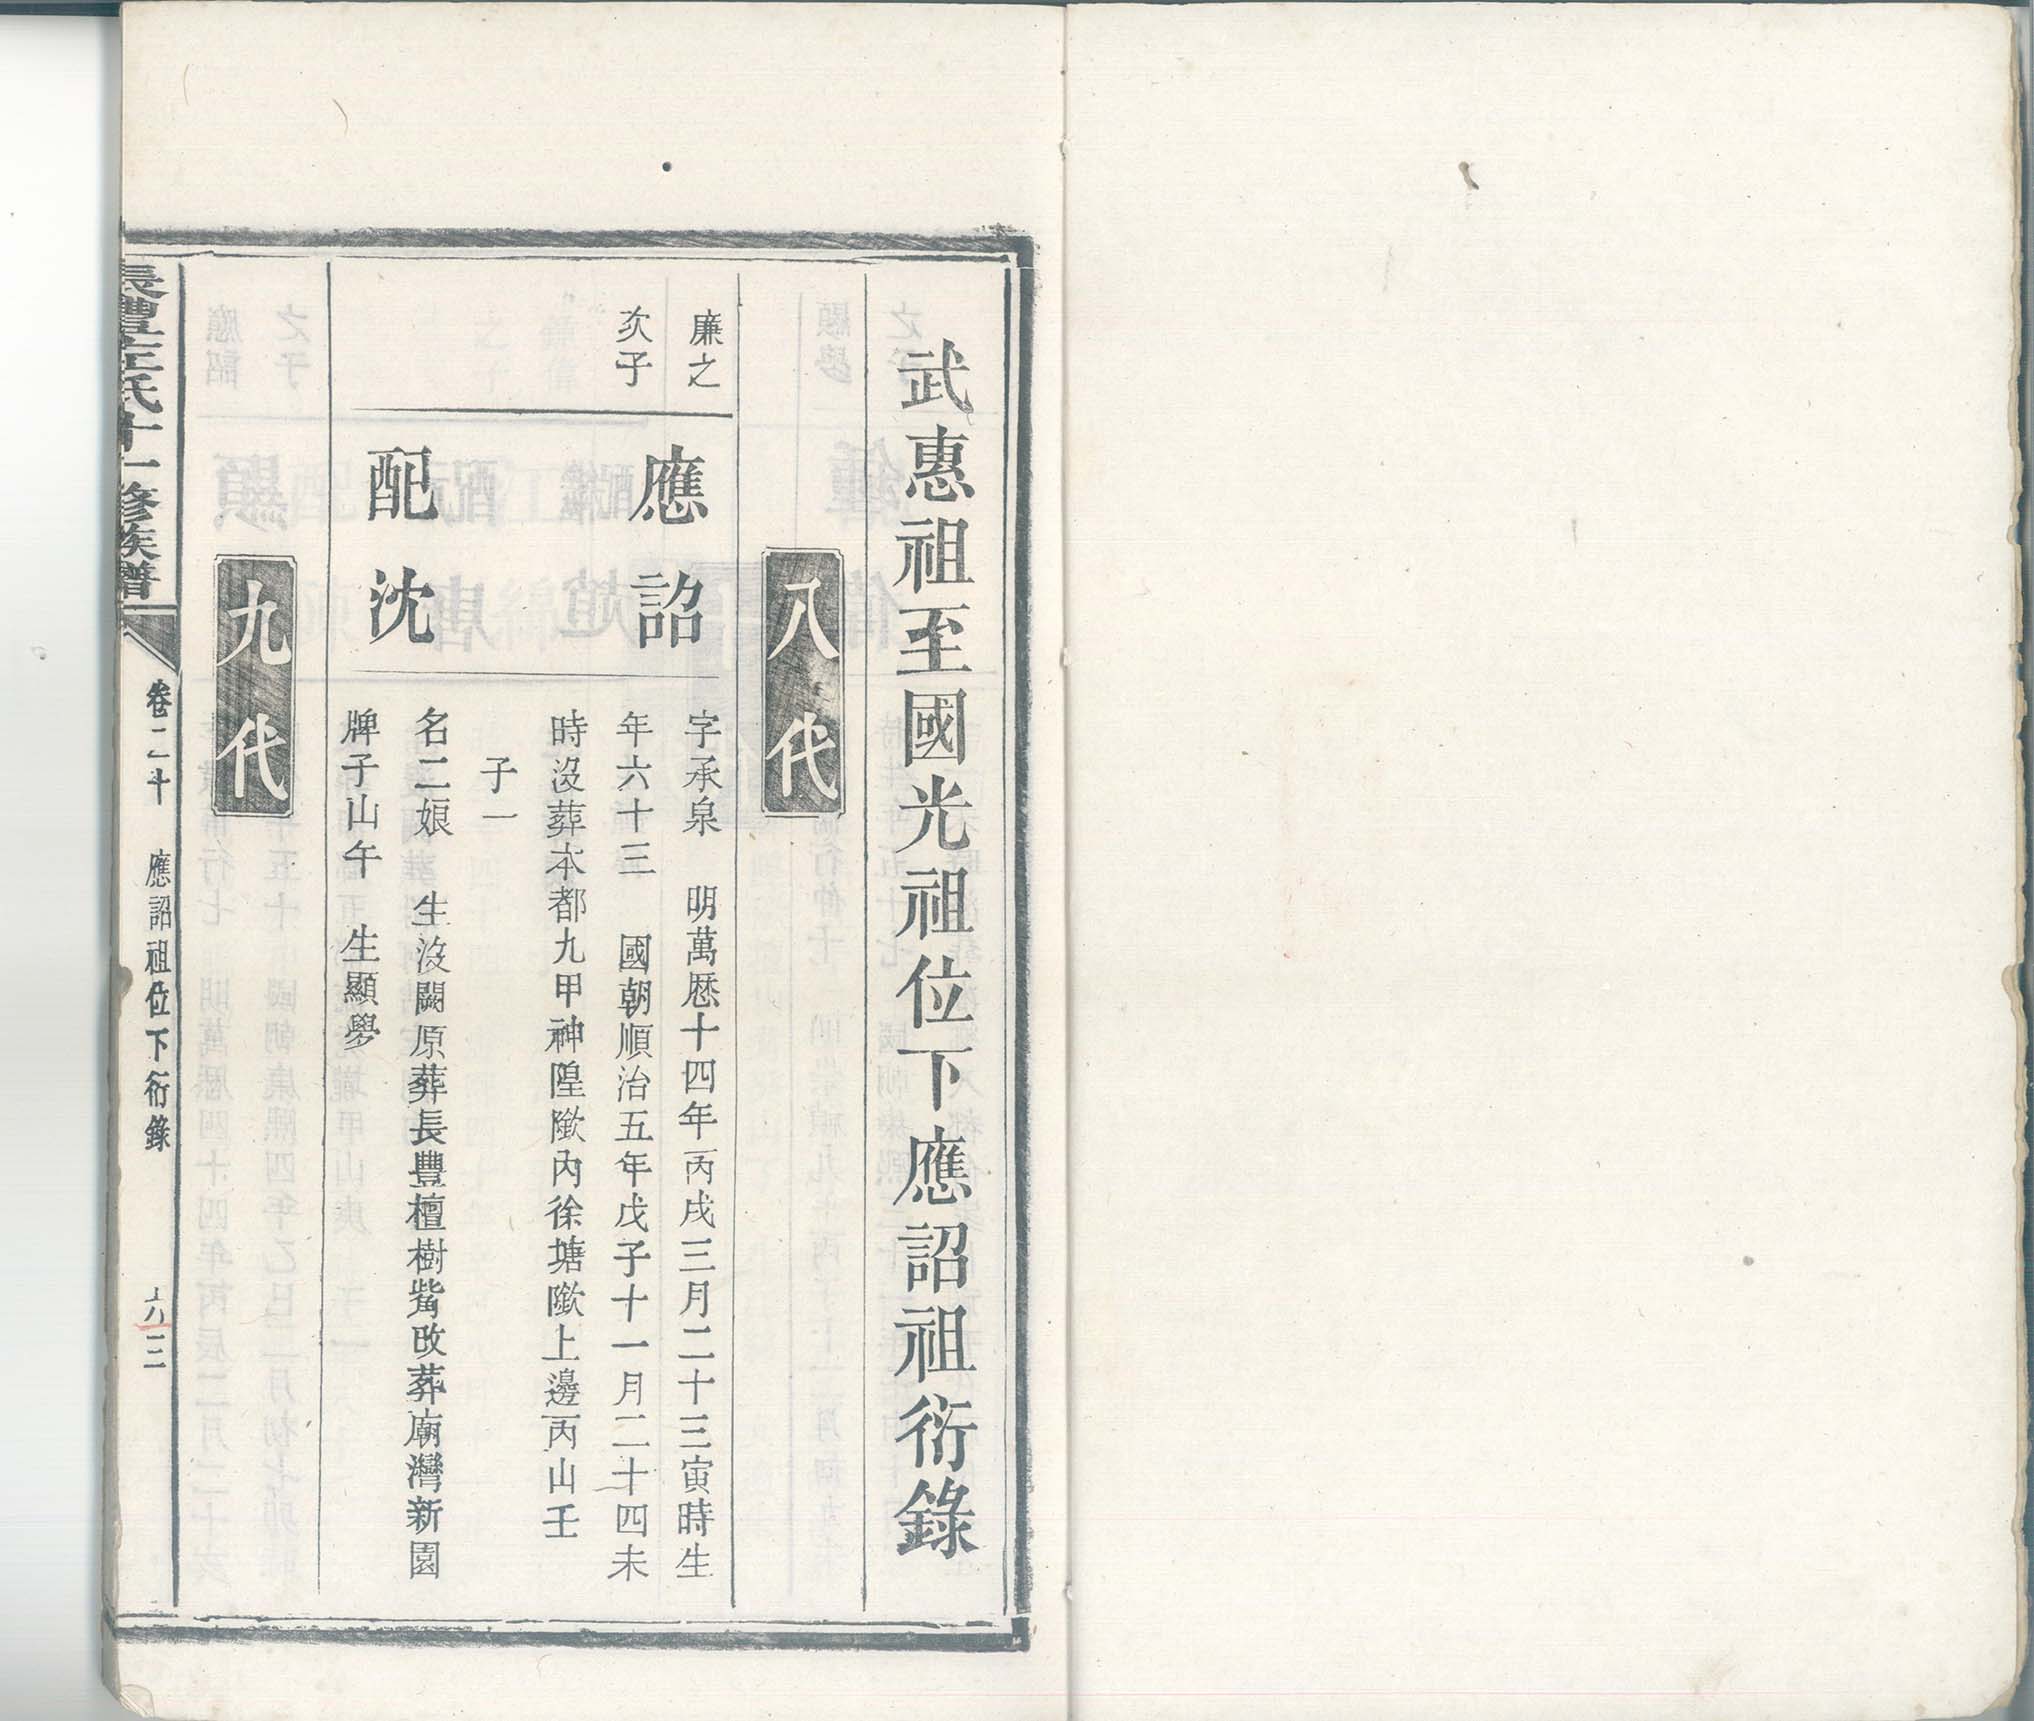 武惠祖至國光祖位下應詔祖衍錄
八代
廉之
次子
應詔
字承泉 明萬歷十四年丙戌三月二十三寅時生
年六十三 國朝順治五年戊子十一月二十四未
時沒葬本都九甲神隍隞內徐塘隞上邊丙山壬
子一
配沈
名二娘 生沒闕原葬長豐檀樹觜改葬廟灣新園
牌子山午 生顯學
九代
長豐 氏十一修族譜
卷二十 應詔祖位下衍錄